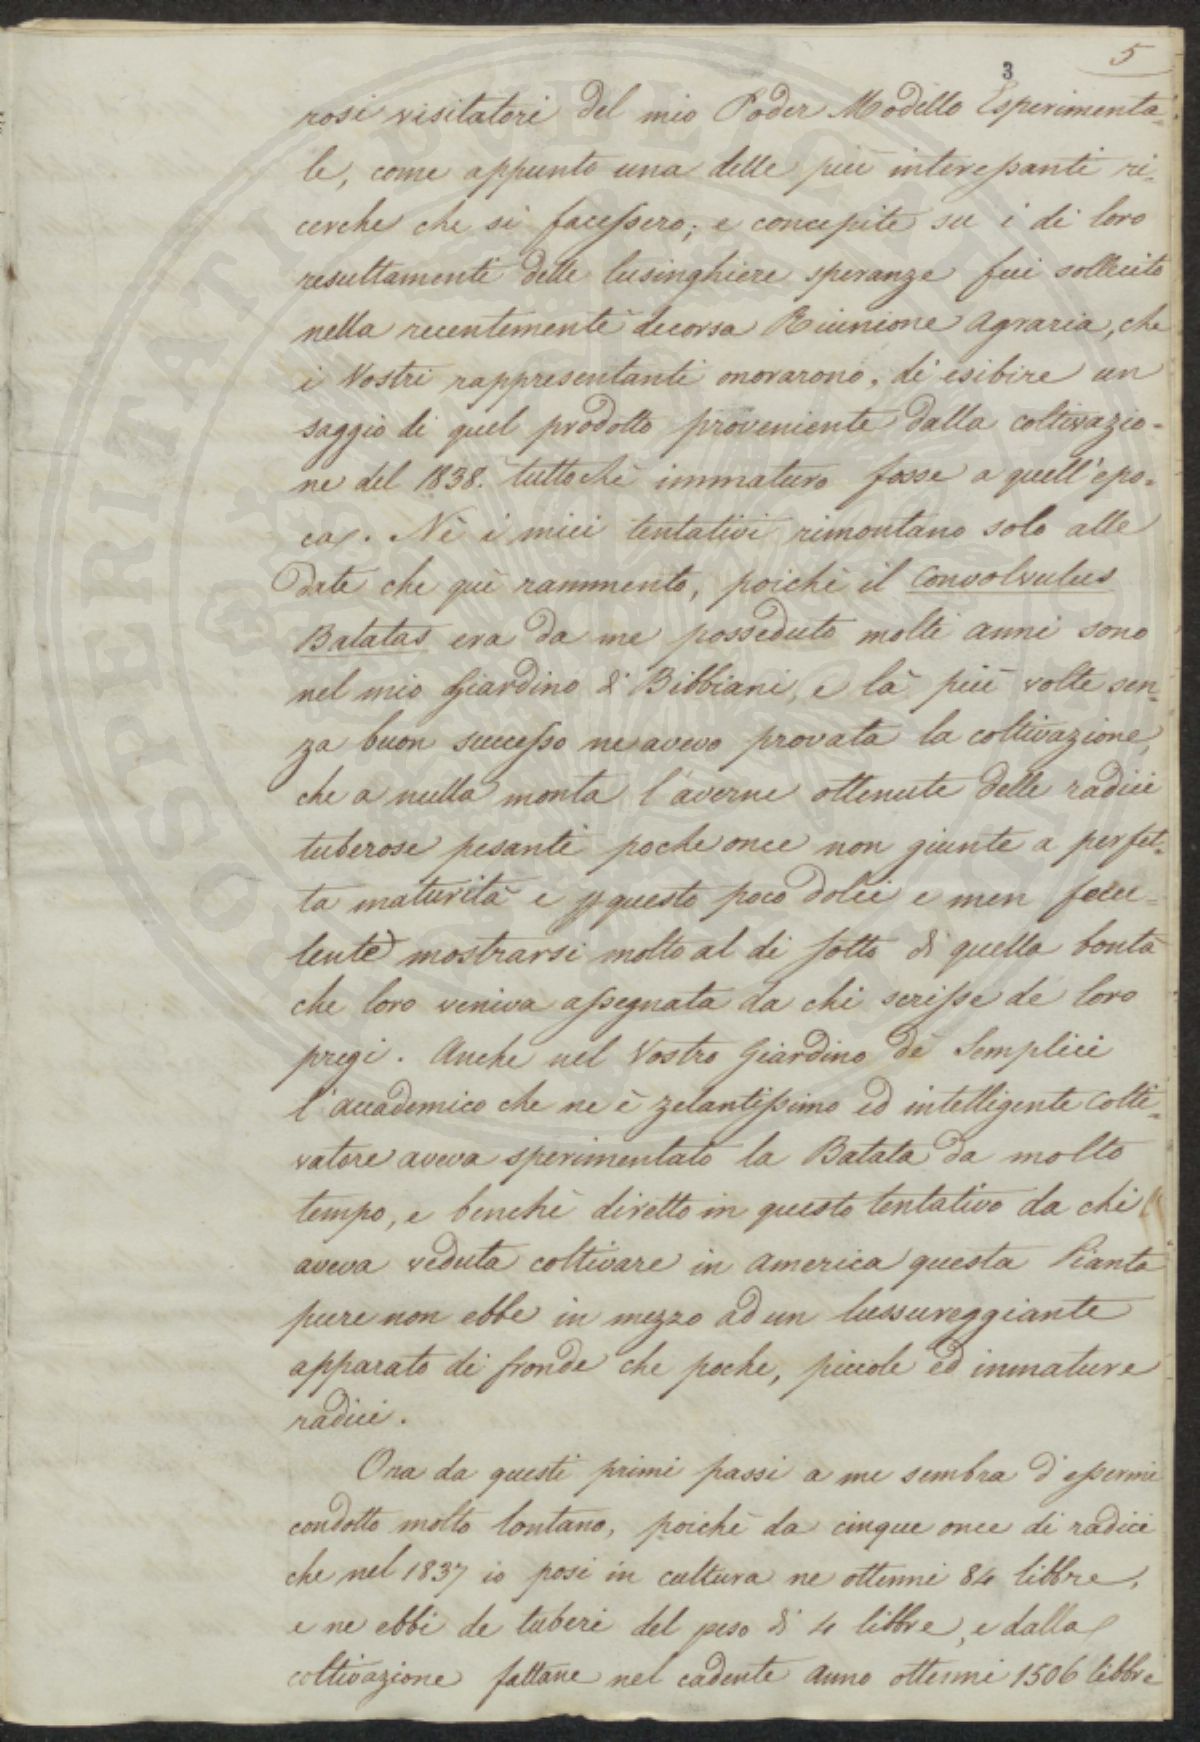 5
3
rosi visitatori del mio Poder Modello Esperimenta-
le, come appunto una delle più interessanti ri-
cerche che si facessero; e concepite su i di loro
resultamenti delle lusinghiere speranze fui sollecito
nella recentemente decorsa Riunione Agraria, che
i Vostri rappresentanti onorarono, di esibire un
saggio di quel prodotto proveniente dalla coltivazio-
ne del 1838. tuttochè immaturo fosse a quell'epo-
ca. Nè i miei tentativi rimontano solo alle
date che quì rammento, poichè il Convolvulus
Batatas era da me posseduto molti anni sono
nel mio Giardino di Bibbiani, e là più volte sen-
za buon successo ne avevo provata la coltivazione,
che a nulla monta l'averne ottenute delle radici
tuberose pesanti poche once non giunte a perfet-
ta maturità e p questo poco dolci e men fecu-
lente mostrarsi molto al di sotto di quella bontà
che loro veniva assegnata da chi scrisse de loro
pregi. Anche nel Vostro Giardino de' Semplici
l'accademico che ne è zelantissimo ed intelligente Colti-
vatore aveva sperimentato la Batata da molto
tempo, e benchè diretto in questo tentativo da chi
aveva veduta coltivare in America questa Pianta
pure non ebbe in mezzo ad un lussureggiante
apparato di fronde che poche, piccole ed inmature
radici.
Ora da questi primi passi a me sembra d'essermi
condotto molto lontano, poichè da cinque once di radici
che nel 1837 io posi in cultura ne ottenni 84 libbre,
e ne ebbi de tuberi del peso di 4 libbre, e dalla
coltivazione fattane nel cadente anno ottenni 1506 libbre